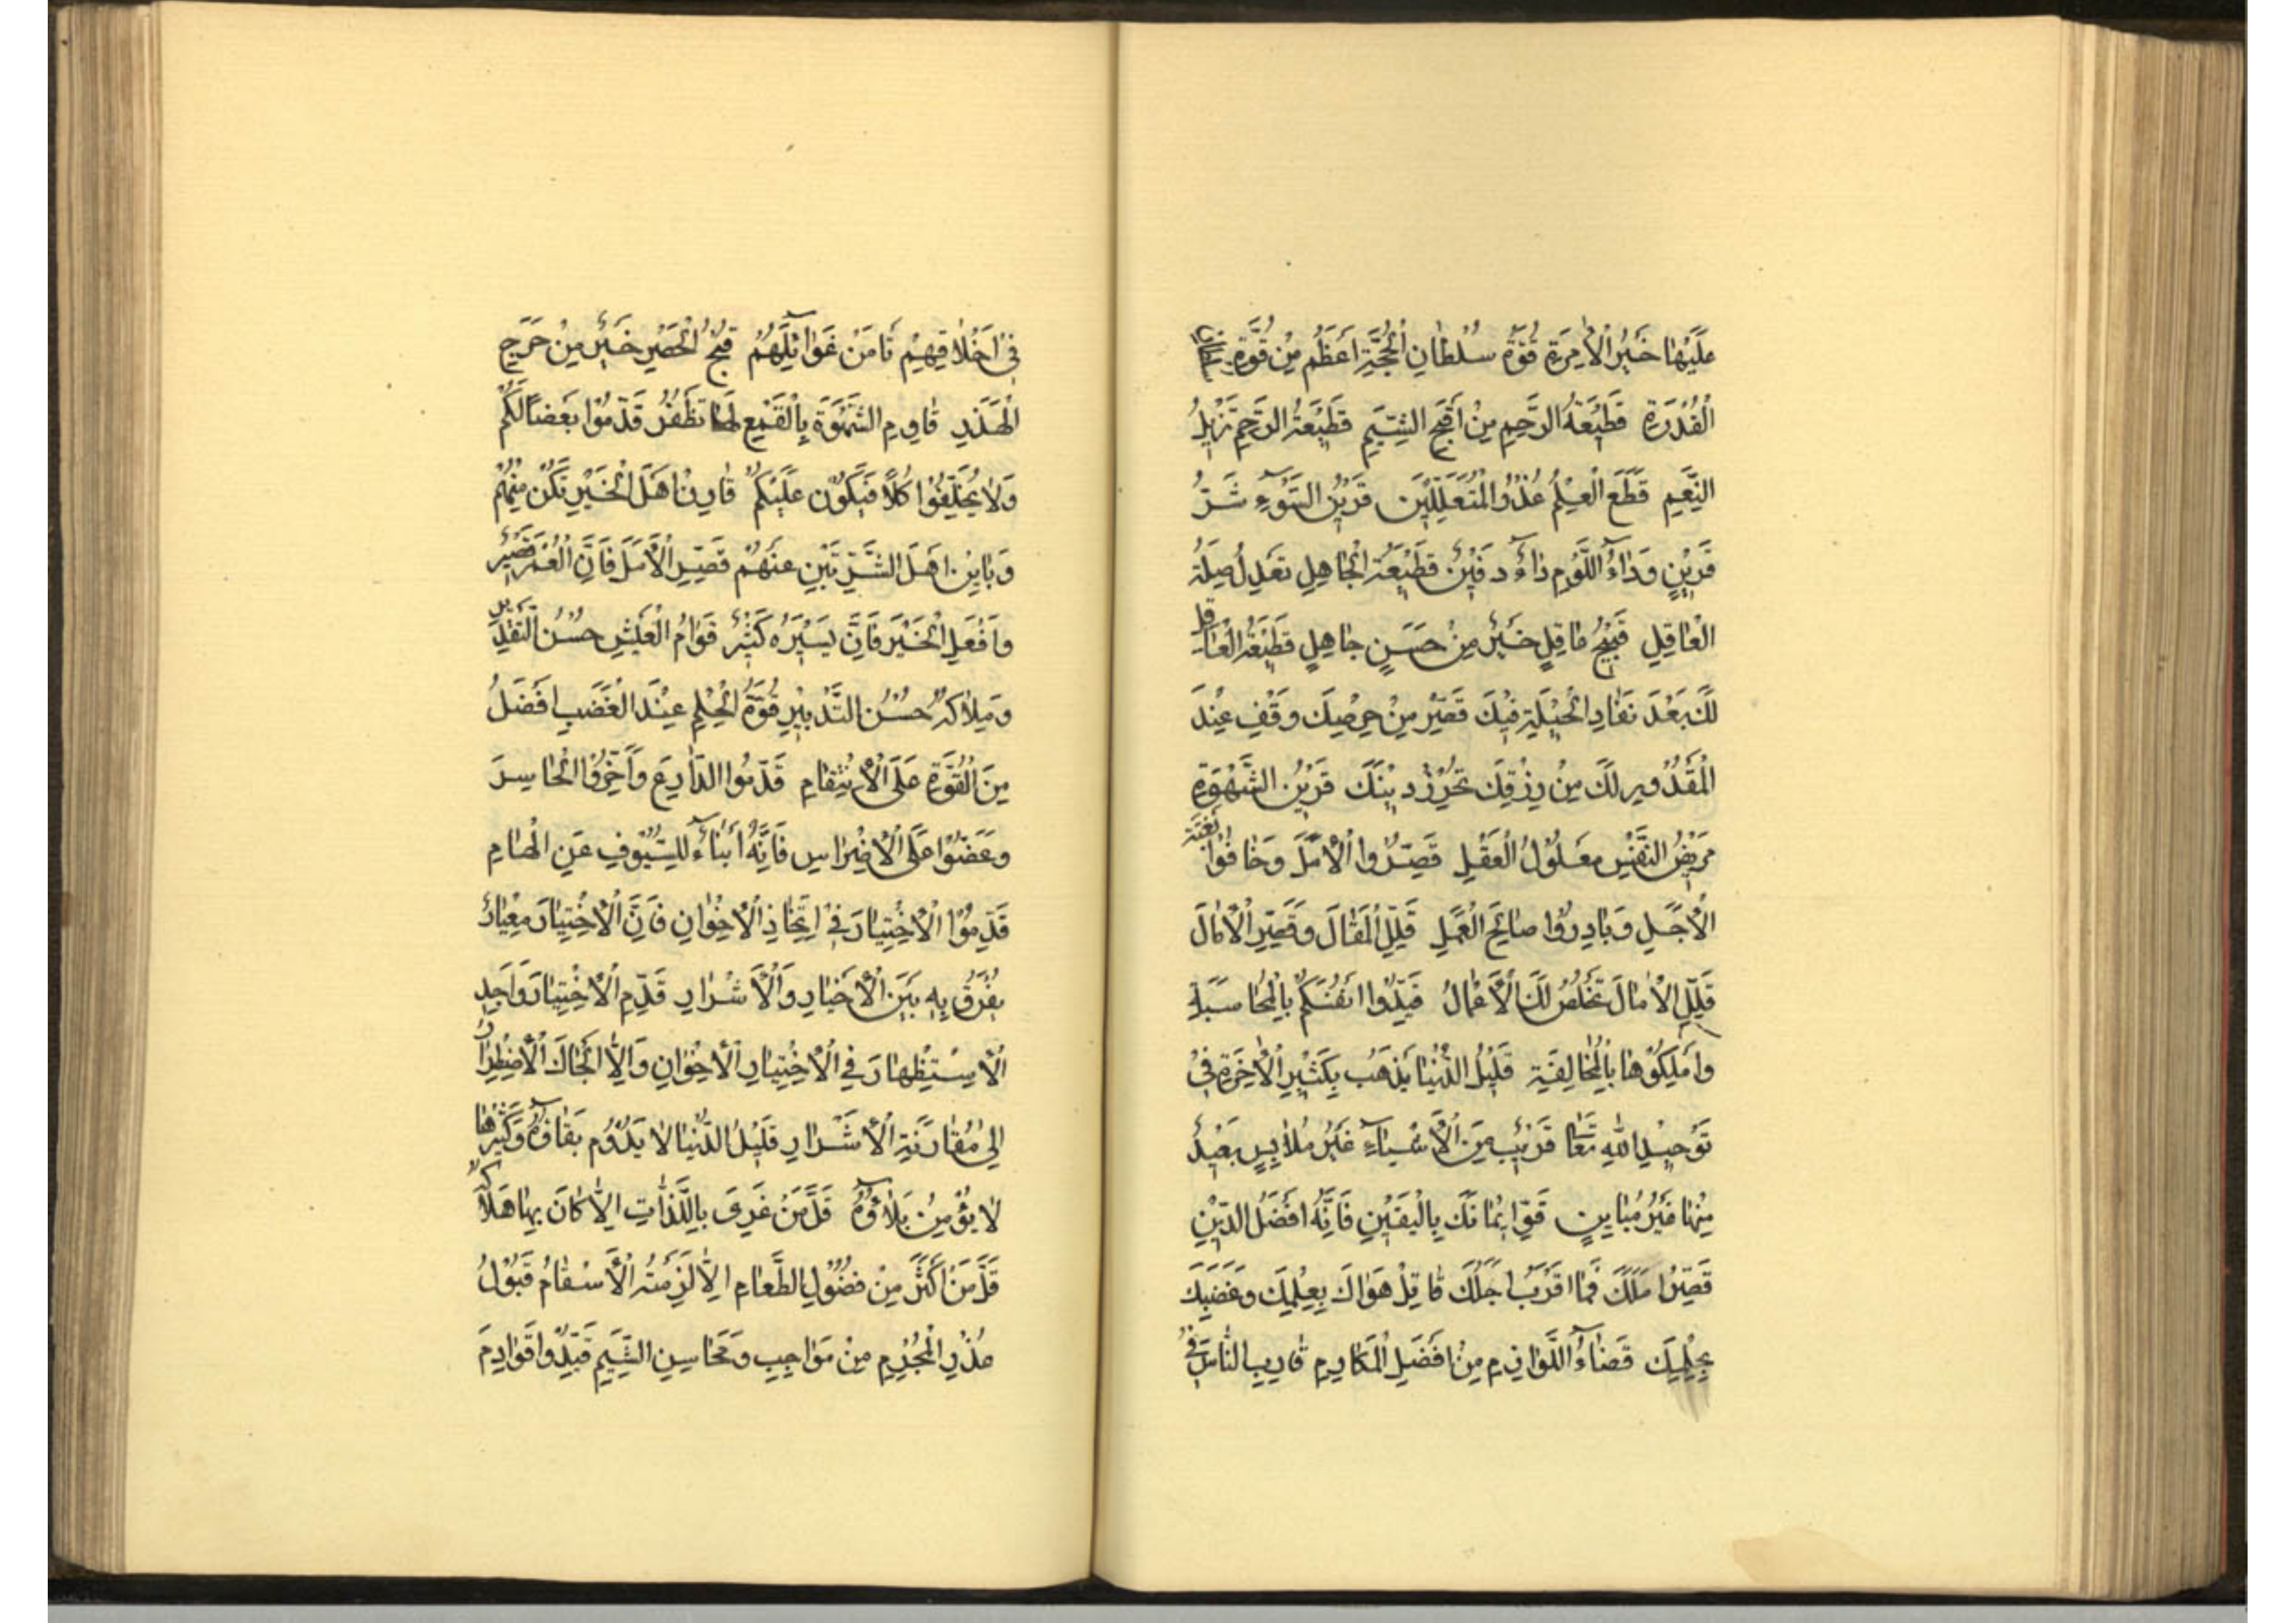 عَلَيْهَا خَيْرُ الْأَمِرَةِ قُوَّةُ سُلْطَانِ الْحُجَّةِ اَعْظَمُ مِنْ قُوَّةِ
الْقُدْرَةِ قَطِيعَةُ الرَّحِمِ مِنْ اَقْبَحِ الشِّيَمِ قَطِيعَةُ الرَّحِمِ تَزِيلُ
النِّعَمِ قَطَعَ الْعِلْمُ عُذْرَ الْمُتَعَلِّلِينَ قَرِينُ السُّوءِ شَرُّ
قَرِينٍ وَدَاءُ اللَّؤْمِ دَاءٌ دَفِينٌ قَطِيعَةُ الْجَاهِلِ تَعْدِلُ صِلَةَ
الْعَاقِلِ قَبِيحُ عَاقِلٍ خَيْرٌ مِنْ حَسَنِ جَاهِلٍ قَطِيعَةُ الْعَاقِلِ
لَكَ بَعْدَ نَفَادِ الْحِيلَةِ فِيكَ قَصِّرْ مِنْ حِرْصِكَ وَقِفْ عِنْدَ
الْمَقْدُورِ لَكَ مِنْ رِزْقِكَ تُحْرِزْ دِينَكَ قَرِينُ الشَّهْوَةِ
مَرِيضُ النَّفْسِ مَعْلُولُ الْعَقْلِ قَصِّرُوا الْأَمَلَ وَخَافُوا بَغْتَةَ
الْأَجَلِ وَبَادِرُوا صَالِحَ الْعَمَلِ قَلِّلِ الْمَقَالَ وَقَصِّرِ الْآمَالَ
قَلِّلِ الْآمَالَ تَخْلُصْ لَكَ الْأَعْمَالُ قَيِّدُوا اَنْفُسَكُمْ بِالْمُحَاسَبَةِ
وَامْلِكُوهَا بِالْمُخَالَفَةِ قَلِيلُ الدُّنْيَا يَذْهَبُ بِكَثِيرِ الْآخِرَةِ فِي
تَوْحِيدِ اللهِ تَعَا قَرِيبٌ مِنَ الْأَشْيَاءِ غَيْرُ مُلَابِسٍ بَعِيدٌ
مِنْهَا غَيْرُ مُبَايِنٍ قَوِّ اِيمَانَكَ بِالْيَقِينِ فَاِنَّهُ اَفْضَلُ الدِّينِ
قَصِّرْ اَمَلَكَ فَمَا اَقْرَبَ اَجَلَكَ قَاتِلْ هَوَاكَ بِعِلْمِكَ وَغَضَبَكَ
بِحِلْمِكَ قَضَاءُ اللَّوَازِمِ مِنْ اَفْضَلِ الْمَكَارِمِ قَارِبِ النَّاسَ فِي
فِي اَخْلَاقِهِمْ تَأْمَنْ غَوَائِلَهُمْ قُبْحُ الْحَصْرِ خَيْرٌ مِنْ حَرَجِ
الْهَذَرِ قَاوِمِ الشَّهْوَةَ بِالْقَمْعِ لَهَا تَظْفَرْ قَدِّمُوا بَعْضًا لَكُمْ
وَلَا تُخَلِّفُوا كُلًّا فَيَكُونَ عَلَيْكُمْ قَارِنْ اَهْلَ الْخَيْرِ تَكُنْ مِنْهُمْ
وَبَايِنْ اَهْلَ الشَّرِّ تَبِنْ عَنْهُمْ قَصِّرِ الْأَمَلَ فَاِنَّ الْعُمْرَ قَصِيرٌ
وَافْعَلِ الْخَيْرَ فَاِنَّ يَسِيرَهُ كَثِيرٌ قَوَامُ الْعَيْشِ حُسْنُ التَّقْدِيرِ
وَمِلَاكُهُ حُسْنُ التَّدْبِيرِ قُوَّةُ الْحِلْمِ عِنْدَ الْغَضَبِ اَفْضَلُ
مِنَ الْقُوَّةِ عَلَى الْاِنْتِقَامِ قَدِّمُوا الدَّارِعَ وَاَخِّرُوا الْحَاسِرَ
وَعَضُّوا عَلَى الْأَضْرَاسِ فَاِنَّهُ اَنْبَاءٌ لِلسُّيُوفِ عَنِ الْهَامِ
قَدِّمُوا الْاِخْتِيَارَ فِي اتِّخَاذِ الْاِخْوَانِ فَاِنَّ الْاِخْتِيَارَ مِعْيَارٌ
يُفْرَقُ بِهِ بَيْنَ الْأَخْيَارِ وَالْأَشْرَارِ قَدِّمِ الْاِخْتِيَارَ وَاَجِدِ
الْاِسْتِظْهَارَ فِي الْاِخْتِيَارِ الْاِخْوَانِ وَاِلَّا اَلْجَاكَ الْاِضْطِرَارُ
اِلَى مُقَارَنَةِ الْأَشْرَارِ قَلِيلُ الدُّنْيَا لَا يَدُومُ بَقَاؤُهُ وَكَثِيرُهَا
لَا يُؤْمَنُ بَلَاؤُهُ قَلَّ مَنْ غَرِيَ بِاللَّذَّاتِ اِلَّا كَانَ بِهَا هَلَاكُهُ
قَلَّ مَنْ اَكْثَرَ مِنْ فُضُولِ الطَّعَامِ اِلَّا لَزِمَتْهُ الْأَسْقَامُ قَبُولُ
عُذْرِ الْمُجْرِمِ مِنْ مَوَاجِبِ وَمَحَاسِنِ الشِّيَمِ قَيِّدُوا قَوَادِمَ